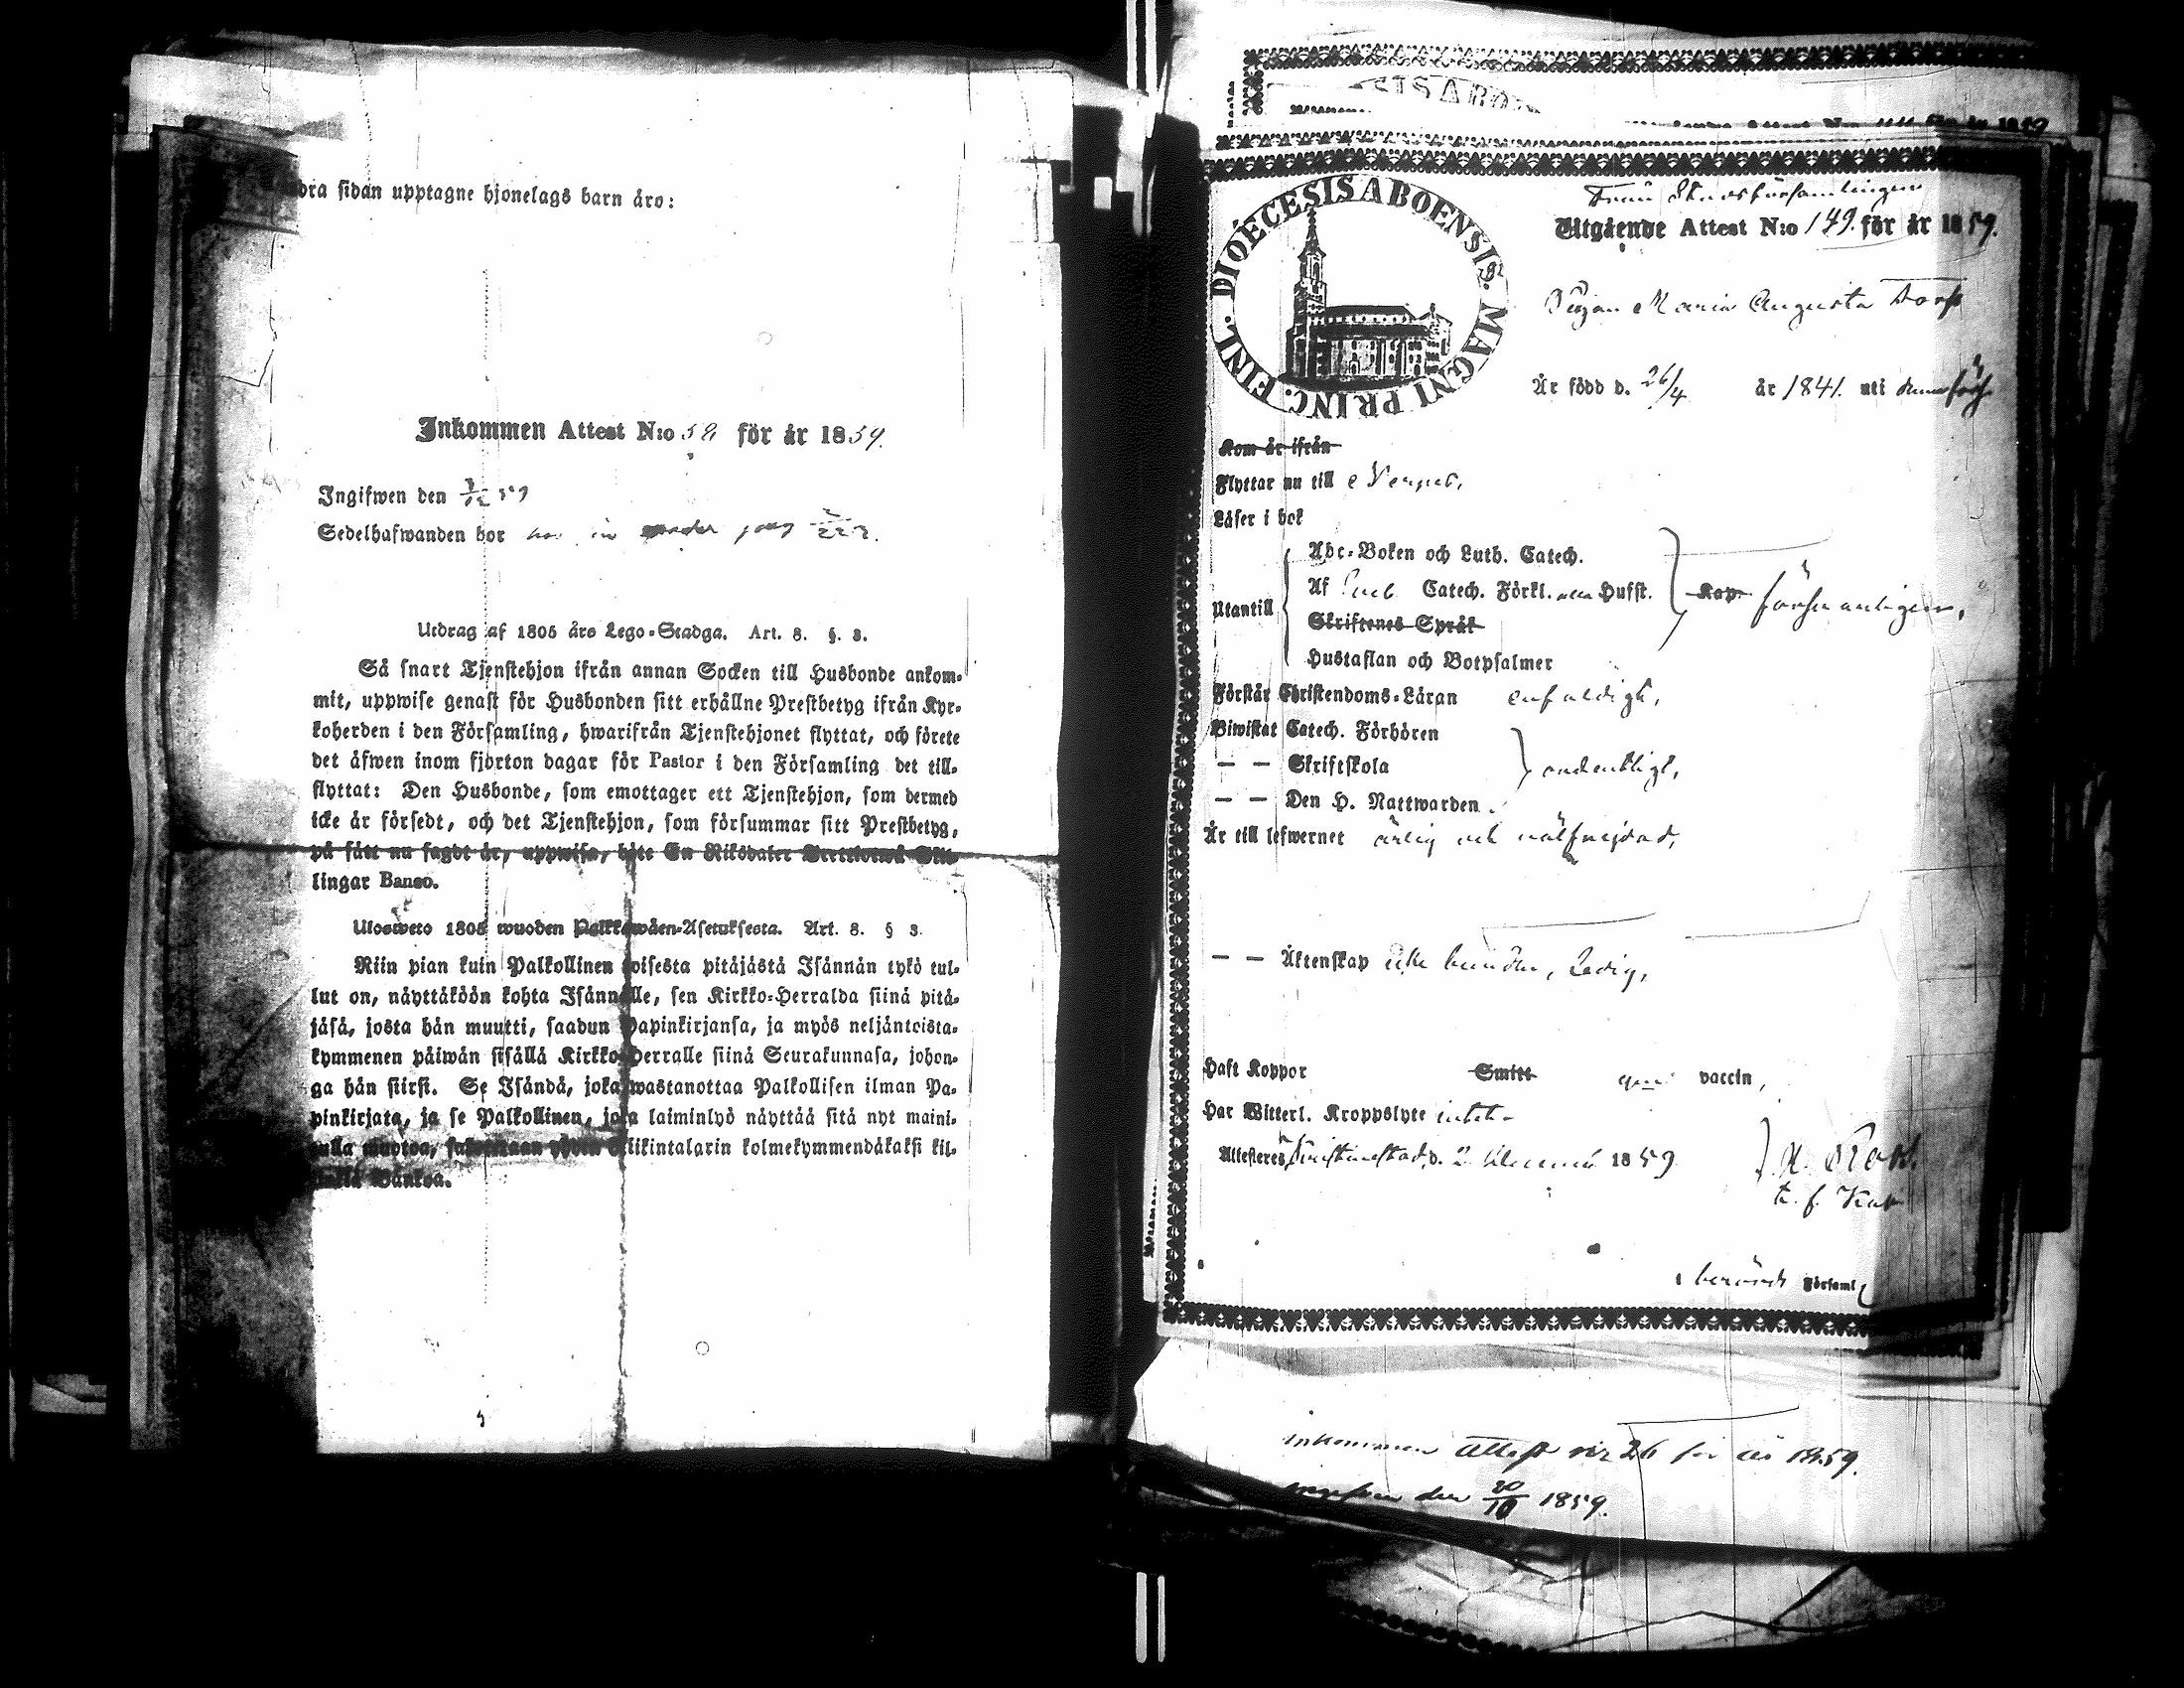 dra sidan upptagne hjonelags barn äro:
Inkommen Attest N:o 52 för år 1859.
Ingifwen den
Sedelhafwanden bor
Utdrag af 1805 års Lego-Stadga. Art. 8. §. 3.
Så snart Tjenstehjon ifrån annan Socken till Husbonde ankom-
mit, uppwise genast för Husbonden sitt erhållne Prestbetyg ifrån Kyr-
koherden i den Församling, hwarifrån Tjenstehjonet flyttat, och förete
det äfwen inom fjorton dagar för Pastor i den Församling det till-
flyttat: Den Husbonde, som emottager ett Tjenstehjon, som dermed
icke är försedt, och det Tjenstehjon, som försummar sitt Prestbetyg,
på sätt nu sagdt är, uppwisa, böte En Riksdaler Trettiotwå Skil-
lingar Banco.
Ulosweto 1805 wuoden Palkkawäen-Asetuksesta. Art. 8. § 3.
Niin pian kuin Palkollinen toisesta pitäjästä Isännän tykö tul-
lut on, näyttäköön kohta Isännälle, sen Kirkko-Herralda siinä pitä-
jäsä, josta hän muutti, saadun Papinkirjansa, ja myös neljäntoista-
kymmenen päiwän sisällä Kirkko-Herralle siinä Seurakunnasa, johon-
ga hän siirsi. Se Isändä, joka wastanottaa Palkollisen ilman Pa-
pinkirjata, ja se Palkollinen, joka laiminlyö näyttää sitä nyt maini-
tulla muotoa, Riikintalarin kolmekymmendäkaksi kil-
Bankoa.
DIOECESIS ABOENSIS. MAGNI PRINC. FINL.
Från Stadsförsamlingen
Utgående Attest N:o 149. för år 1859.
Pigan Maria Augusta
Är född d. 26/4 år 1841. uti
Kom år ifrån
Flyttar nu till
Läser i bok
Utantill
Abc-Boken och Luth. Catech.
Af Catech. Förkl. Hufst.
Skriftenes Språk
Hustaflan och Botpsalmer
Kap.
Förstår Christendoms-Läran enfaldigt,
Biwistat Catech. Förhören
— — Skriftskola
ordentligt,
— — Den H. Nattwarden
Är till lefwernet ärlig och wälfrejdad,
— — Äktenskap icke bunden, ledig,
Haft Koppor Smitt vaccin,
Har Witterl. Kroppslyte intet.
Attesteres, Kristinestad, d. 2 December 1859
t. f. Kap
i berörde Församl.
Inkommen Attest N:r 26 för år 1859.
Ingifwen den 20/10 1859.